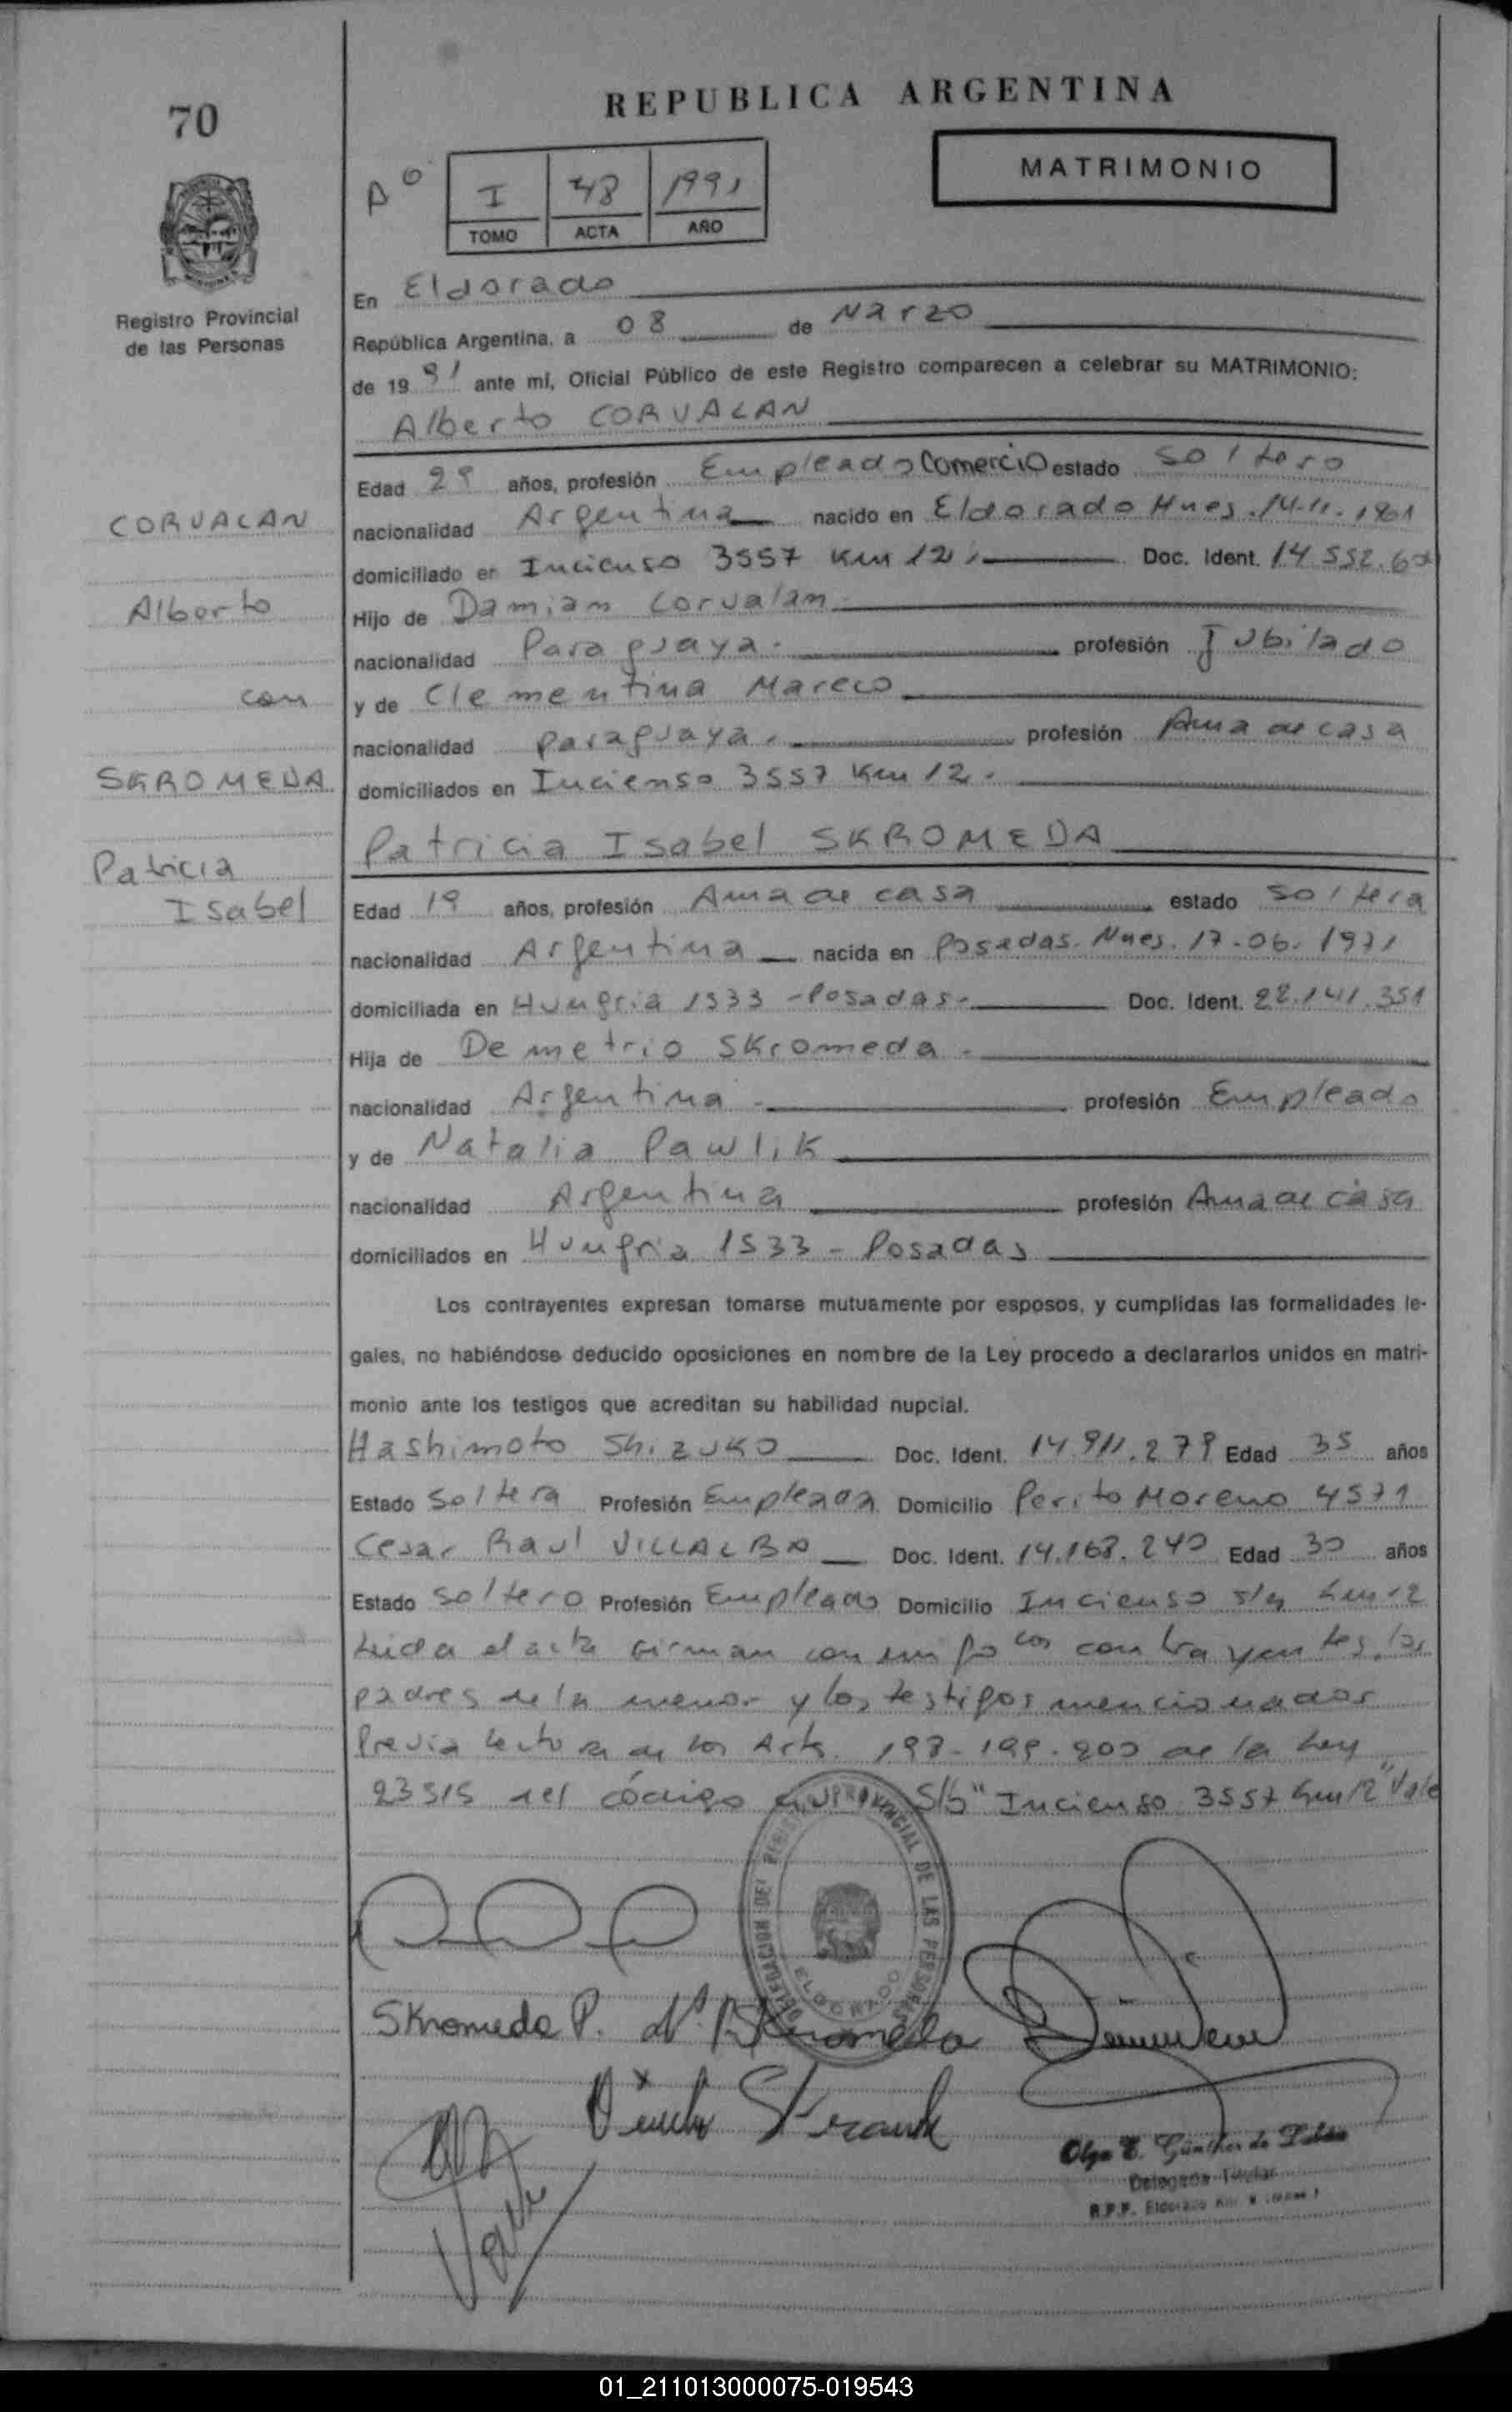 70
REPUBLICA ARGENTINA
MATRIMONIO
Aº
I 48 1991
TOMO ACTA AÑO
Registro Provincial
de las Personas
En Eldorado
República Argentina, a 08 de Marzo
de 1991 ante mí, Oficial Público de este Registro comparecen a celebrar su MATRIMONIO:
Alberto CORVALAN
Edad 29 años, profesión Empleado Comercio estado soltero
CORVALAN
nacionalidad Argentina nacido en Eldorado Mnes. 14.11.1961
domiciliado en Incienso 3557 Km 12. Doc. Ident. 14.552.60
Alberto
Hijo de Damian Corvalan
nacionalidad Paraguaya. profesión Jubilado
con
y de Clementina Mareco
nacionalidad paraguaya. profesión Ama de casa
SKROMEDA
domiciliados en Incienso 3557 Km 12.
Patricia Isabel SKROMEDA
Patricia
Isabel
Edad 19 años, profesión Ama de casa estado soltera
nacionalidad Argentina nacida en Posadas. Mnes. 17.06.1971
domiciliada en Hungria 1533 - Posadas. Doc. Ident. 22.141.351
Hija de Demetrio Skromeda.
nacionalidad Argentina. profesión Empleado
y de Natalia Pawlik
nacionalidad Argentina profesión Ama de casa
domiciliados en Hungria 1533 - Posadas
Los contrayentes expresan tomarse mutuamente por esposos, y cumplidas las formalidades le-
gales, no habiéndose deducido oposiciones en nombre de la Ley procedo a declararlos unidos en matri-
monio ante los testigos que acreditan su habilidad nupcial.
Hashimoto Shizuko Doc. Ident. 14.911.279 Edad 35 años
Estado soltera Profesión Empleada Domicilio Perito Moreno 4571
Cesar Raul VILLALBA Doc. Ident. 14.168.240 Edad 30 años
Estado soltero Profesión Empleado Domicilio Incienso s/n Km 12
Leida el acta firman conmigo los contrayentes, los
padres de la menor y los testigos mencionados
Previa lectura de los Arts. 198-199-200 de la Ley
23515 del código civil S/b "Incienso 3557 Km 12" Vale
DELEGACION DEL REGISTRO PROVINCIAL DE LAS PERSONAS
ELDORADO
Skromeda P. N. P. Skromeda
Olga E. Günther de
Delegada Titular
R.P.P. Eldorado Km
01_211013000075-019543